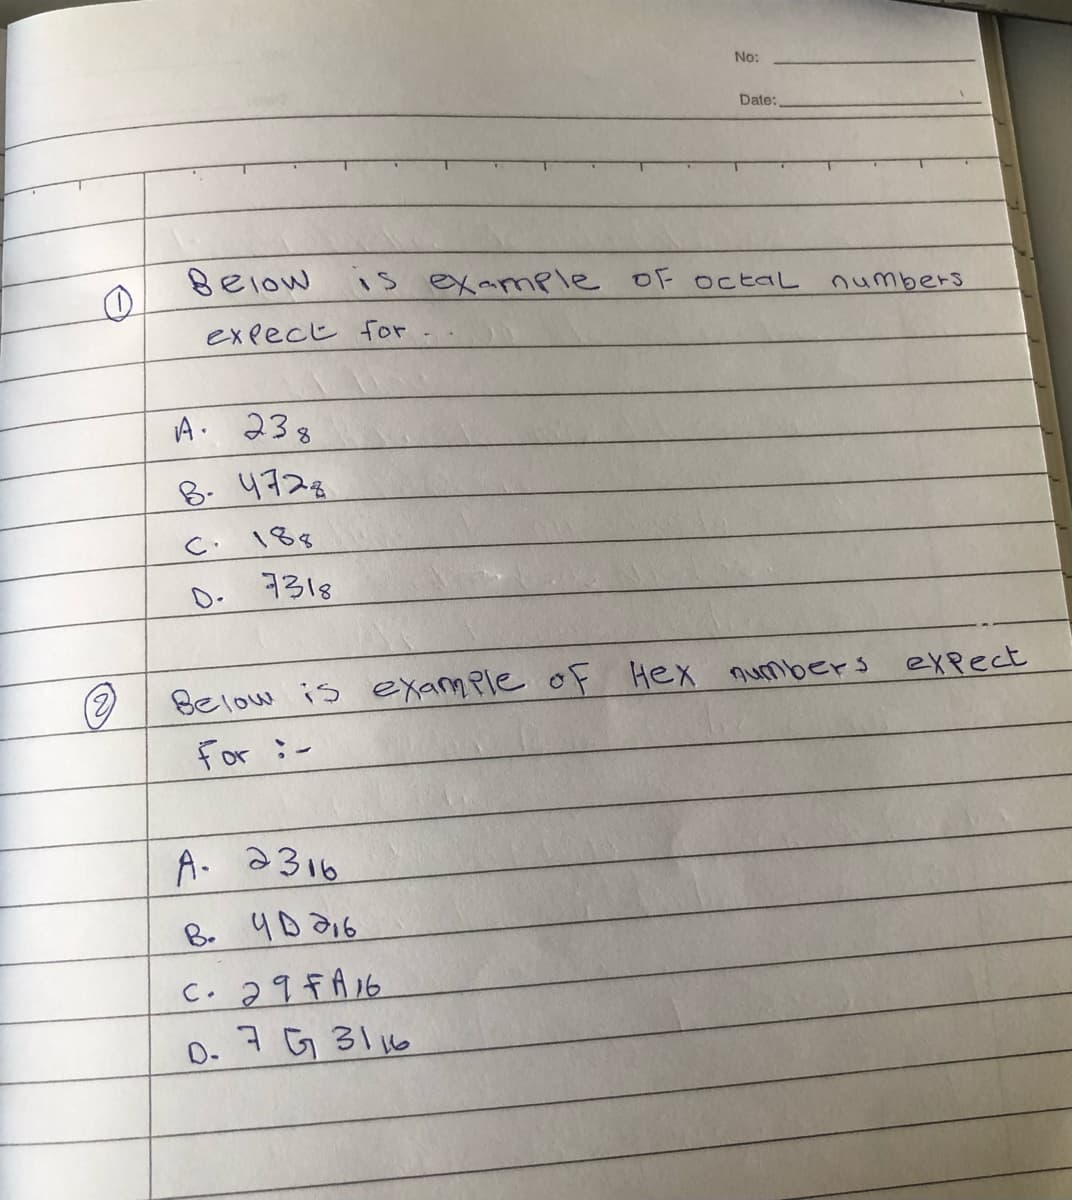 No:
Date:
① Below is example of octal numbers
expect for . .
A. 23₈
B. 472₈
C. 18₈
D. 731₈
② Below is example of Hex numbers expect
for :-
A. 23₁₆
B. 4D2₁₆
C. 29FA₁₆
D. 7G31₁₆